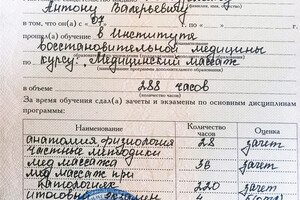 Антону Валерьевичу
(фамилия, имя, отчество)
в том, что он(а) с
прошел(а) обучение в Институте
восстановительной медицины
по курсу: „Медицинский массаж“
в объеме 288 часов
За время обучения сдал(а) зачеты и экзамены по основным дисциплинам
программы:
Наименование Количество часов Оценка
анатомия, физиология 28 зачет
частные методики
мед массажа 36 зачет
мед массаж при
патологиях 220 зачет
итоговый экзамен 4